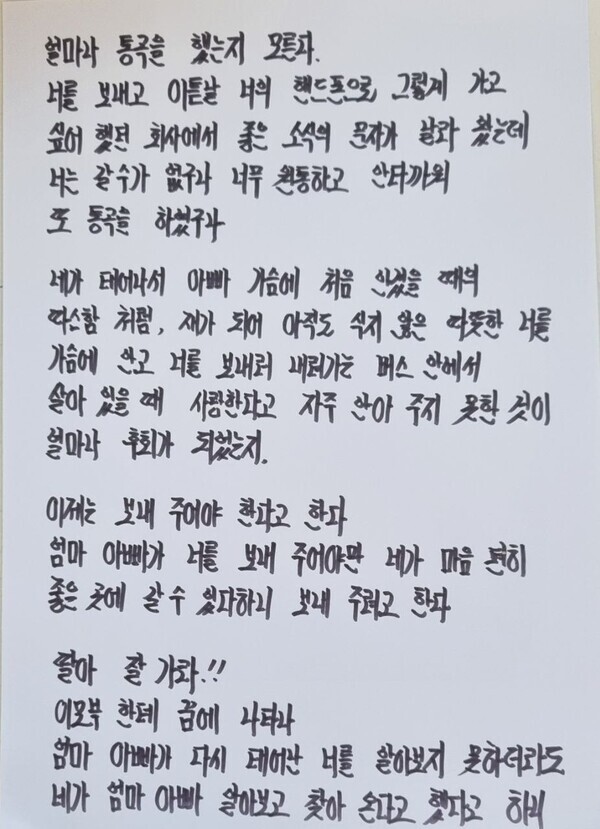 얼마나 통곡을 했는지 모른다.
너를 보내고 이튿날 너의 핸드폰으로 그렇게 가고
싶어 했던 회사에서 좋은 소식의 문자가 날라 왔는데
너는 갈수가 없구나 너무 원통하고 안타까워
또 통곡을 하였구나
네가 태어나서 아빠 가슴에 처음 안겼을 때의
따스함 처럼, 재가 되어 아직도 식지 않은 따뜻한 너를
가슴에 안고 너를 보내러 내려가는 버스 안에서
살아 있을 때 사랑한다고 자주 안아 주지 못한 것이
얼마나 후회가 되었는지.
이제는 보내 주어야 한다고 한다
엄마 아빠가 너를 보내 주어야만 네가 마음 편히
좋은 곳에 갈 수 있다하니 보내 주려고 한다
딸아 잘 가라.!!
이모부 한테 꿈에 나타나
엄마 아빠가 다시 태어난 너를 알아보지 못하더라도
네가 엄마 아빠 알아보고 찾아 온다고 했다고 하니